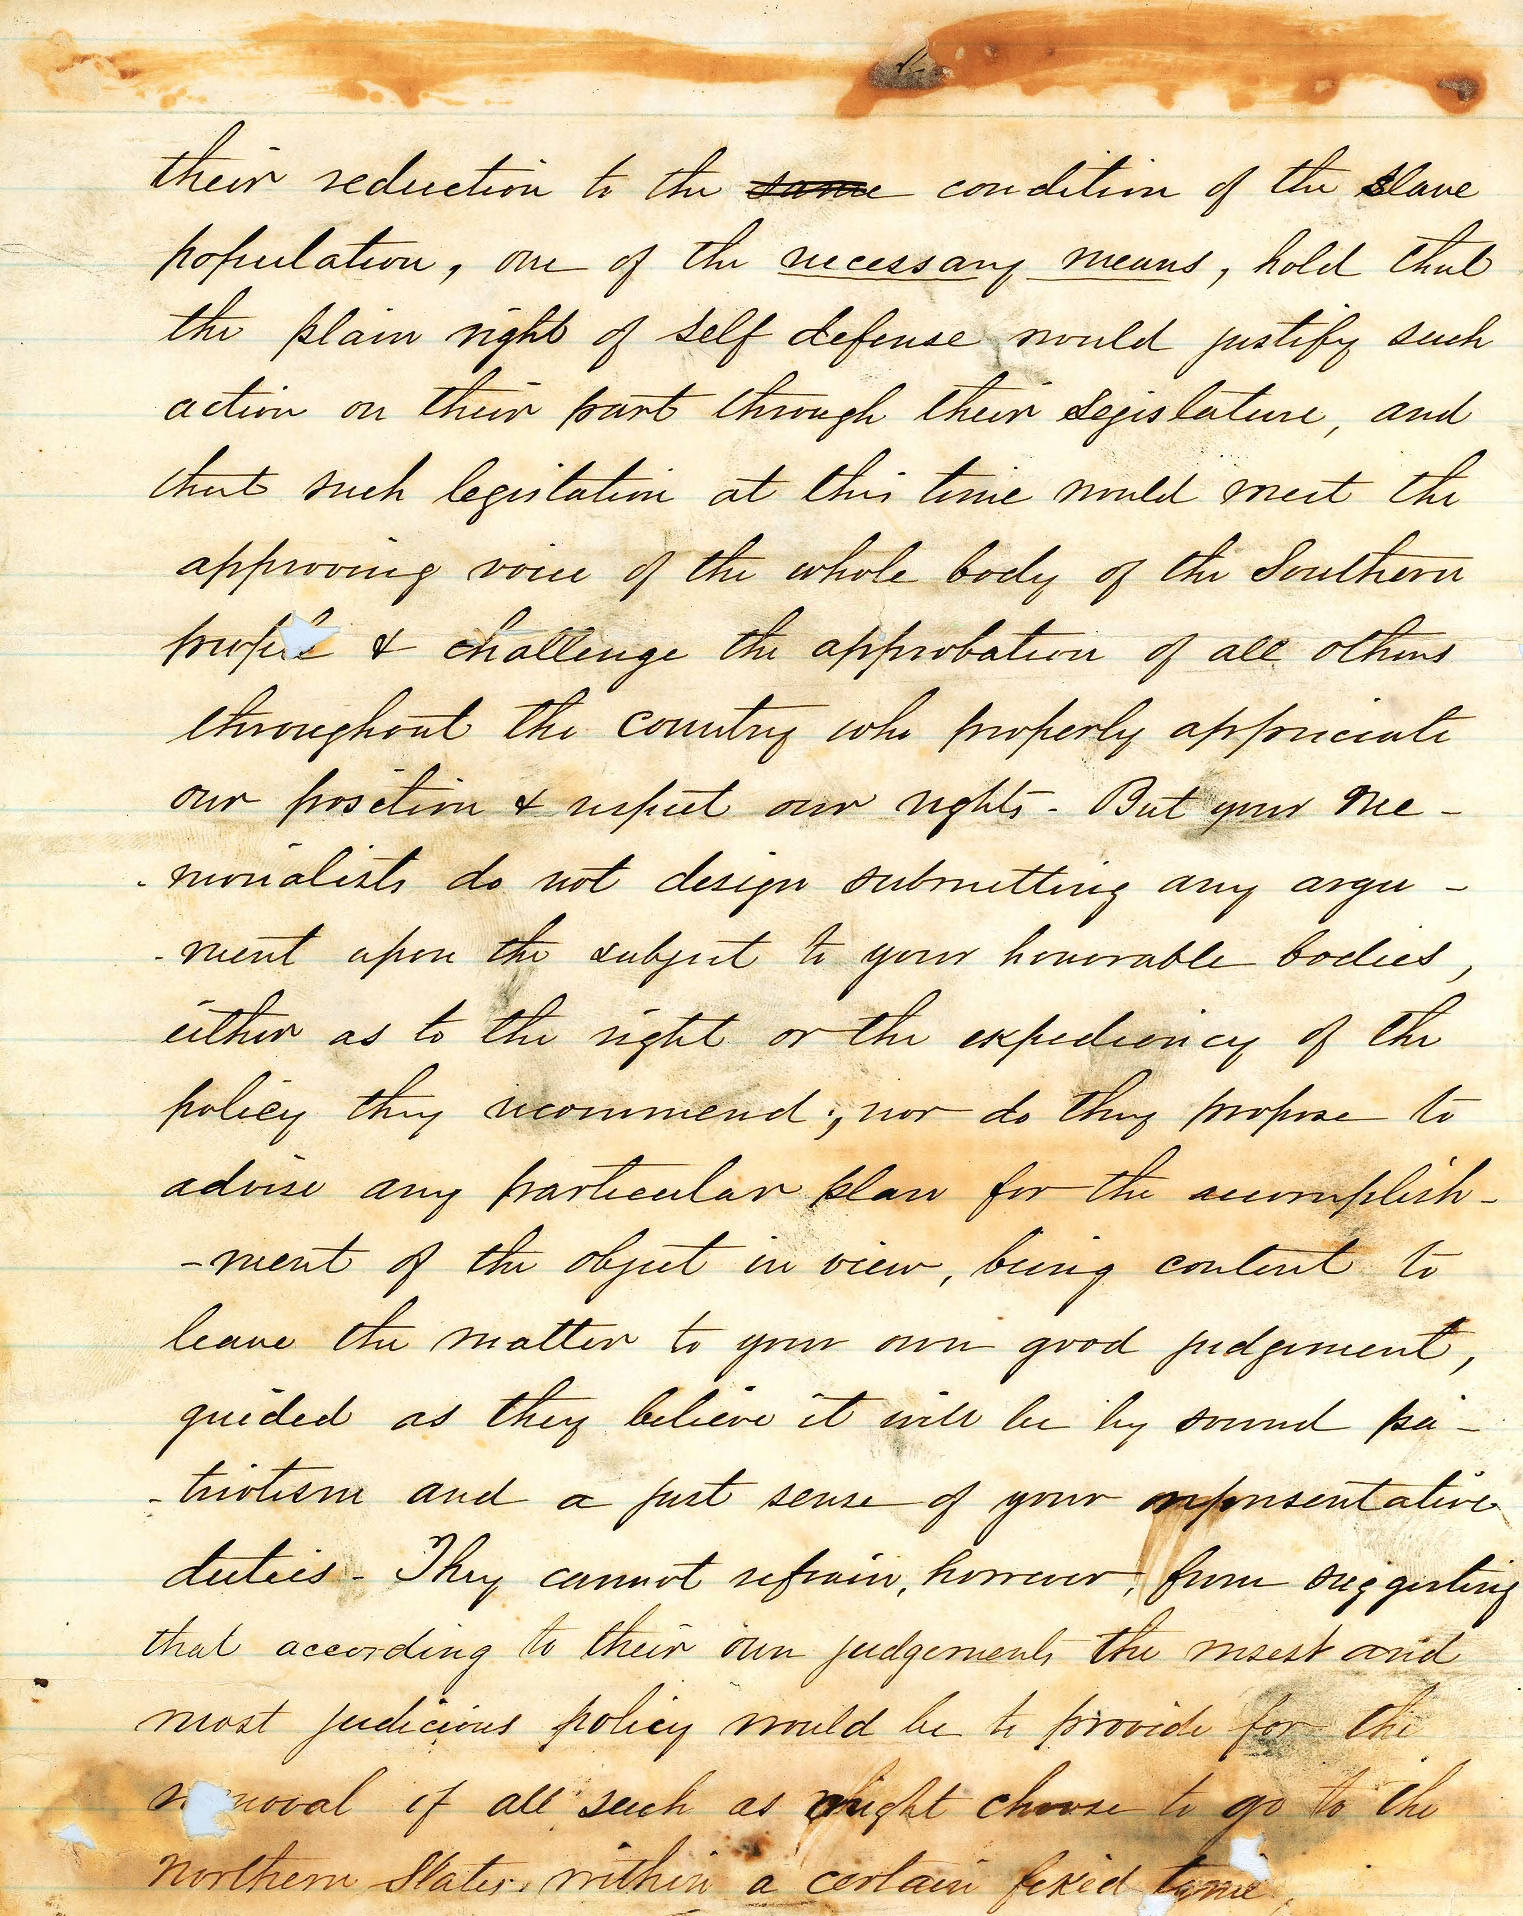 their reduction to the same condition of the slave
population, one of the necessary means, hold that
the plain right of self defense would justify such
action on their part through their Legislature, and
that such legislation at this time would meet the
approving voice of the whole body of the Southern
people & challenge the approbation of all others
throughout the country who properly appreciate
our position & respect our rights - But your Me -
- morialists do not design submitting any argu -
- ment upon the subject to your honorable bodies,
either as to the right or the expediency of the
policy they recommend; nor do they propose to
advise any particular plan for the accomplish -
- ment of the object in view, being content to
leave the matter to your own good judgement,
guided as they believe it will be by sound pa -
- triotism and a just sense of your representative
duties - They cannot refrain, however, from suggesting
that according to their own judgements the wisest and
most judicious policy would be to provide for the
removal of all such as might choose to go to the
Northern States, within a certain fixed time,